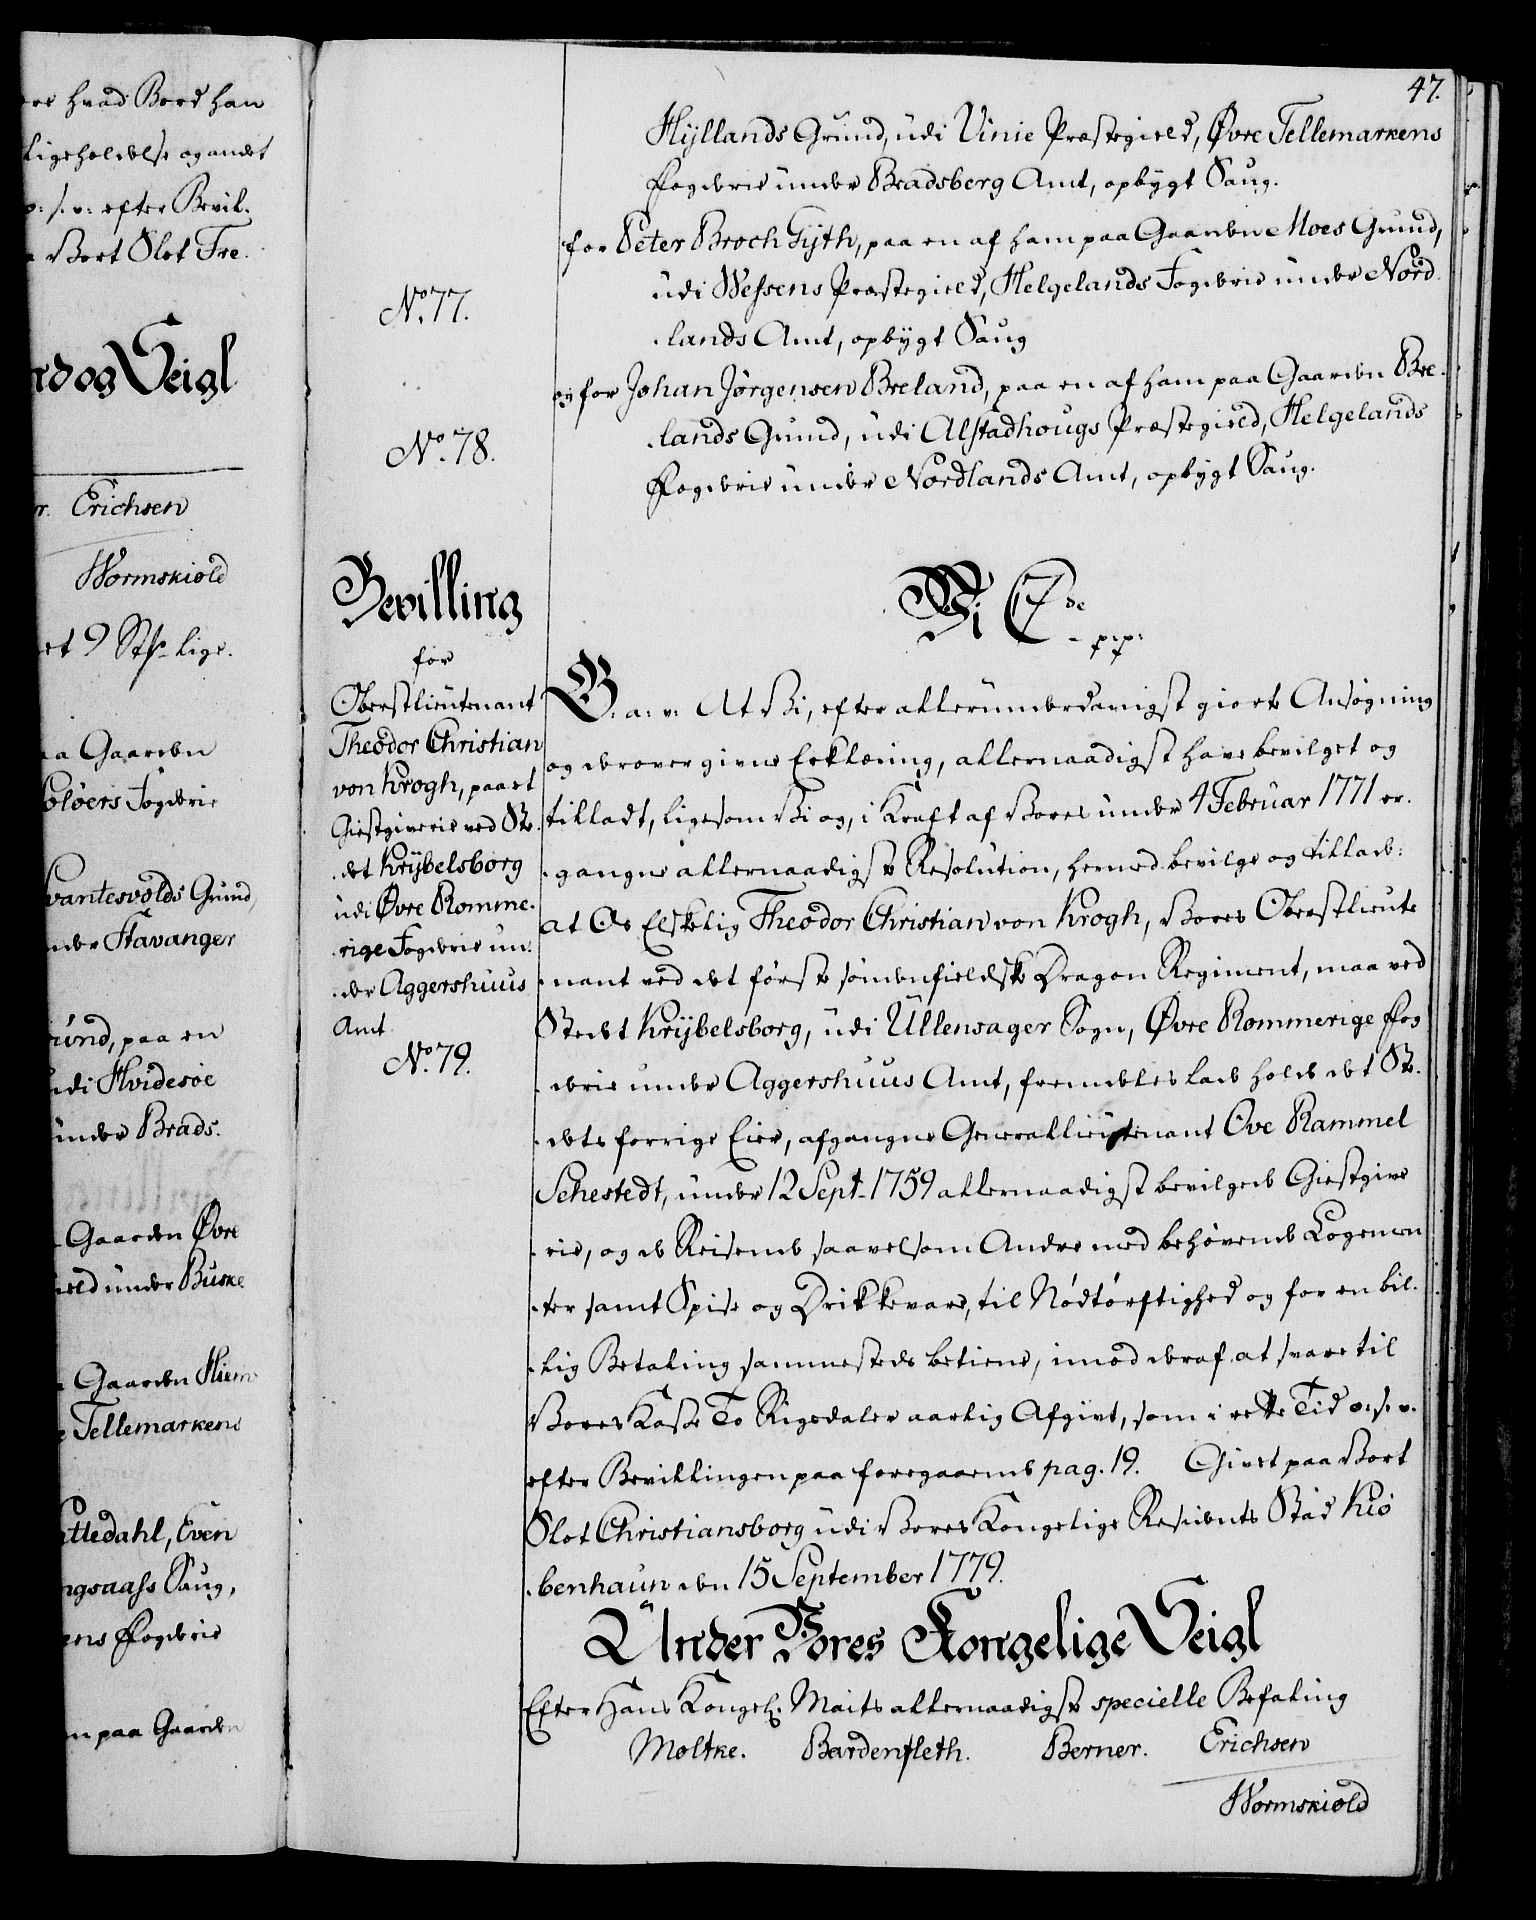 ore hvad Bord han
Ligeholdelse og andet
o: s. v: efter Bevil-
Vort Slot Fre-
rd og Seigl
Erichsen
Wormskiold
et 9 St. lige-
aa Gaarden
Soløers Fogderie
vantesvolds Grund,
nder Stavanger
rund, paa en
udi Hvidesøe
under Brads-
Gaarden Øvre
ield under Buske
Gaarden Hiem
Tellemarkens
tledahl, Even
ngsaass Saug,
ens Fogderie
n paa Gaarden
47.
Hyllands Grund, udi Vinie Præstegield, Øvre Tellemarkens
Fogderie under Bradsberg Amt, opbygt Saug.
No. 77.
for Peter Broch Gyth, paa en af ham paa Gaarden Moes Grund,
udi Wefsens Præstegield, Helgelands Fogderie under Nord-
lands Amt, opbygt Saug
No. 78.
og for Johan Jørgensen Breland, paa en af ham paa Gaarden Bre-
lands Grund, udi Alstadhougs Præstegield, Helgelands
Fogderie under Nordlands Amt, opbygt Saug.
Bevilling
for
Oberstlieutenant
Theodor Christian
von Krogh, paa et
Giestgiverie ved Ste-
det Krybelsborg
udi Øvre Romme-
rige Fogderie un-
der Aggershuus
Amt
No. 79.
Vi C 7de
p: p:
G. a. v. At Vi, efter allerunderdanigst giorte Ansøgning
og derover givne Erklæring, allernaadigst have bevilget og
tilladt, ligesom Vi og, i Kraft af Vores under 4 Februar 1771 er-
gangne allernaadigste Resolution, hermed bevilge og tillade:
at Os Elskelig Theodor Christian von Krogh, Vores Oberstlieute
nant ved det første søndenfieldske Dragon Regiment, maa ved
Stedet Krybelsborg, udi Ullensager Sogn, Øvre Rommerige Fog
derie under Aggershuus Amt, fremdeles lade holde det Ste-
dets forrige Eier, afgangne Generallieutenant Ove Rammel
Sehestedt, under 12 Sept. 1759 allernaadigst bevilgede Giestgive
rie, og de Reisende saavelsom Andre med behøvende Logemen
ter samt Spise og Drikkevare, til Nødtørftighed og for en bil-
lig Betaling sammesteds betiene, imod deraf at svare til
Vores Kasse To Rigsdaler aarlig Afgivt, som i rette Tid o: s. v.
efter Bevillingen paa foregaaende pag. 19. Givet paa Vort
Slot Christiansborg udi Vores Kongelige Residents Stad Kiø
benhavn den 15 September 1779.
Under Vores Kongelige Seigl
Efter Hans Kongel. Maits allernaadigste specielle Befaling
Moltke. Bardenfleth. Berner. Erichsen
Wormskiold